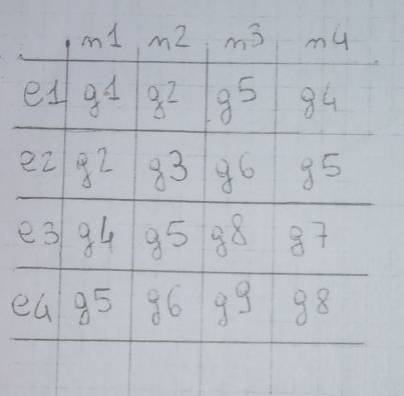 n1 n2 n3 n4
e1 g1 g2 g5 g4
e2 g2 g3 g6 g5
e3 g4 g5 g8 g7
e4 g5 g6 g9 g8